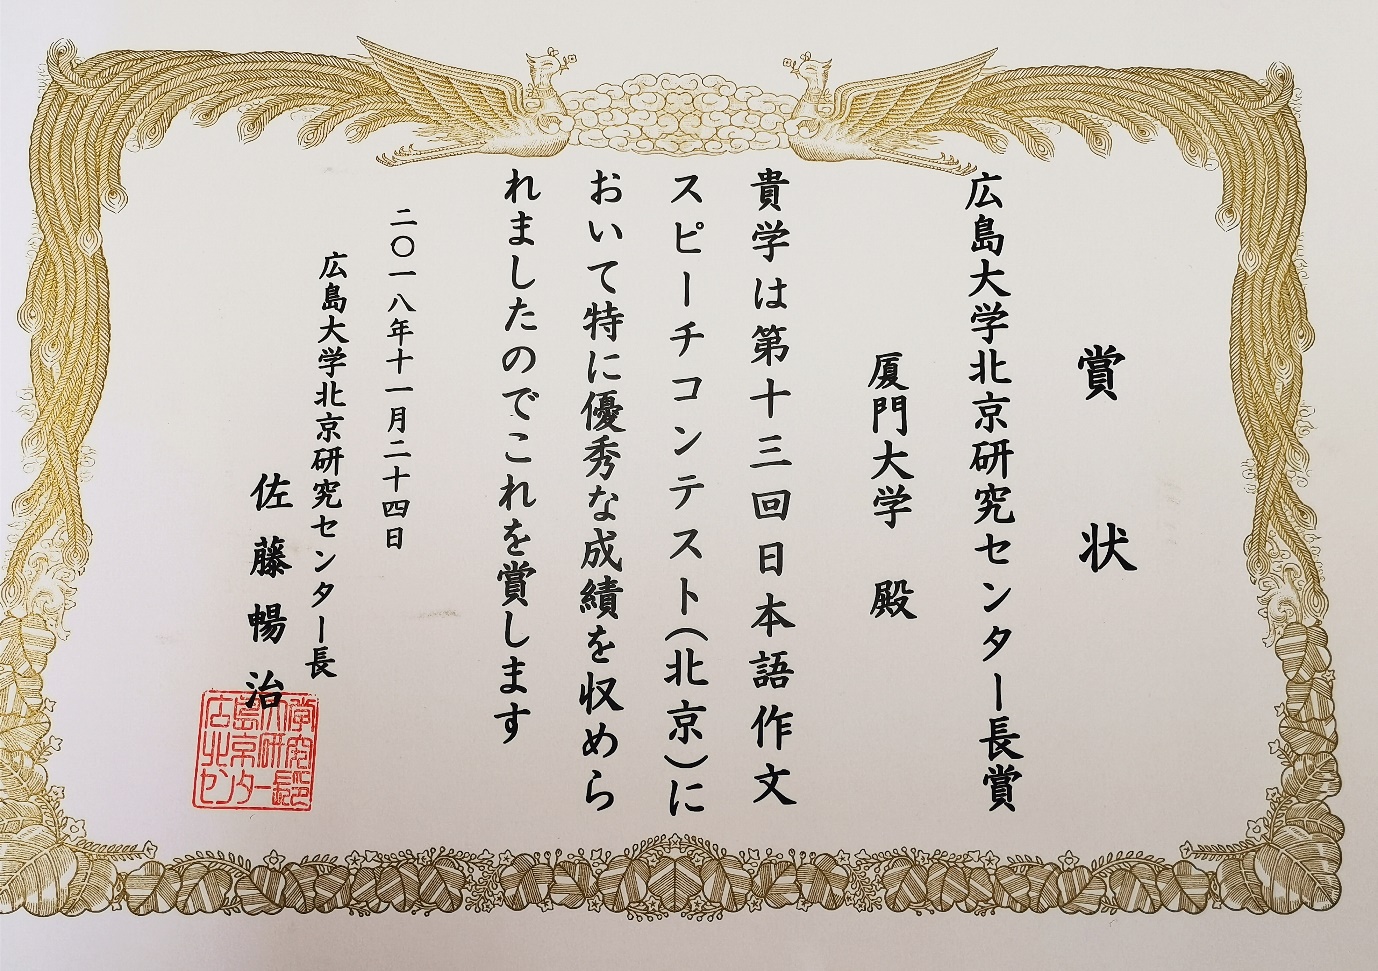 賞状
広島大学北京研究センター長賞
厦門大学 殿
貴学は第十三回日本語作文
スピーチコンテスト(北京)に
おいて特に優秀な成績を収めら
れましたのでこれを賞します
二〇一八年十一月二十四日
広島大学北京研究センター長
佐藤暢治
広島大学
北京研究
センター長印